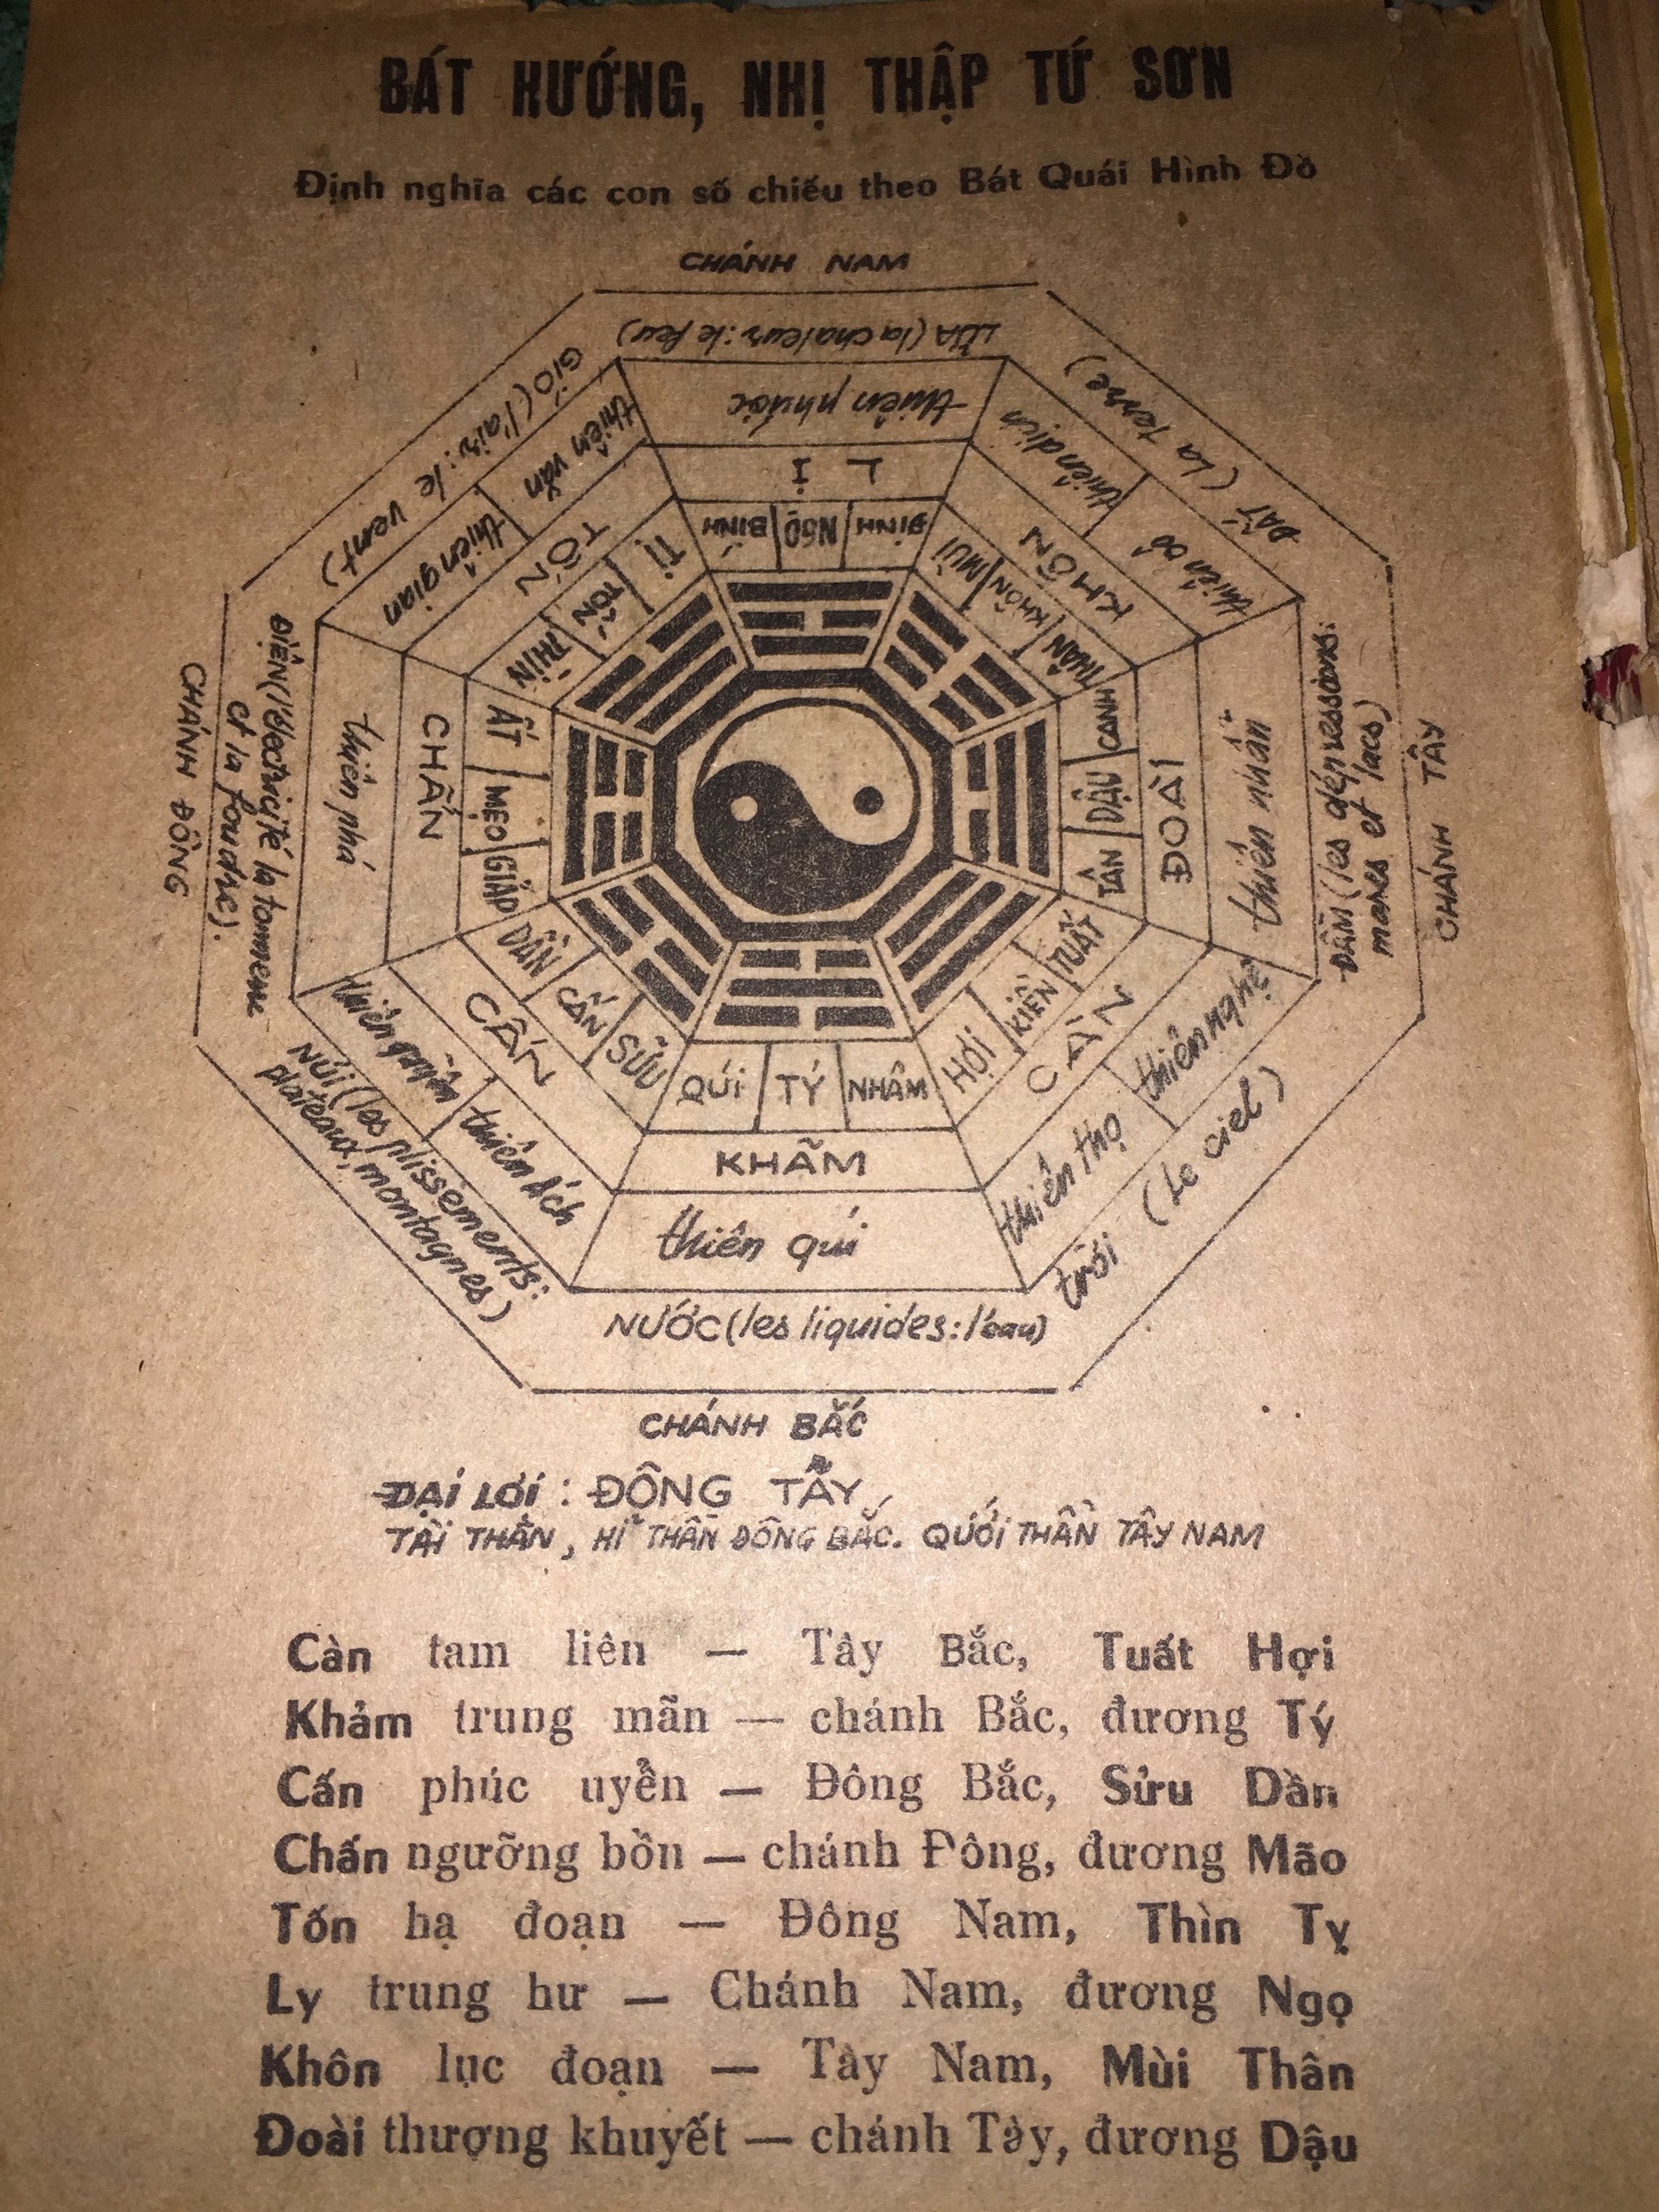 BÁT HƯỚNG, NHỊ THẬP TỨ SƠN
Định nghĩa các con số chiếu theo Bát Quái Hình Đồ
CHÁNH NAM
LỬA (la chaleur: le feu)
thiên phước
LI
BÍNH
NGỌ
ĐINH
ĐẤT (La Terre)
thiên dịch
thiên đố
KHÔN
MÙI
KHÔN
THÂN
CHÁNH TÂY
ĐẦM (les dépressions:
mares et lacs)
thiên nhẫn
ĐOÀI
CANH
DẬU
TÂN
trời (Le ciel)
thiên nghệ
thiên thọ
CÀN
TUẤT
KIỀN
HỢI
NHÂM
TÝ
QÚI
KHẪM
thiên qúi
NƯỚC (les liquides: l'eau)
CHÁNH BẮC
NÚI (les plissements:
plateaux, montagnes)
thiên quyền
thiên ách
CẤN
SỬU
CẤN
DẦN
CHÁNH ĐÔNG
ĐIỆN (l'électricité la tourmente
et la foudre).
thiên phá
CHẤN
GIÁP
MẸO
ẤT
GIÓ (l'air: le vent)
thiên gian
thiên văn
TỐN
THÌN
TỐN
TỊ
ĐẠI LỢI: ĐÔNG TÂY
TÀI THẦN, HĨ THẦN ĐÔNG BẮC. QUỚI THẦN TÂY NAM
Càn tam liên — Tây Bắc, Tuất Hợi
Khảm trung mãn — chánh Bắc, đương Tý
Cấn phúc uyển — Đông Bắc, Sửu Dần
Chấn ngưỡng bồn — chánh Đông, đương Mão
Tốn hạ đoạn — Đông Nam, Thìn Tỵ
Ly trung hư — Chánh Nam, đương Ngọ
Khôn lục đoạn — Tây Nam, Mùi Thân
Đoài thượng khuyết — chánh Tây, đương Dậu